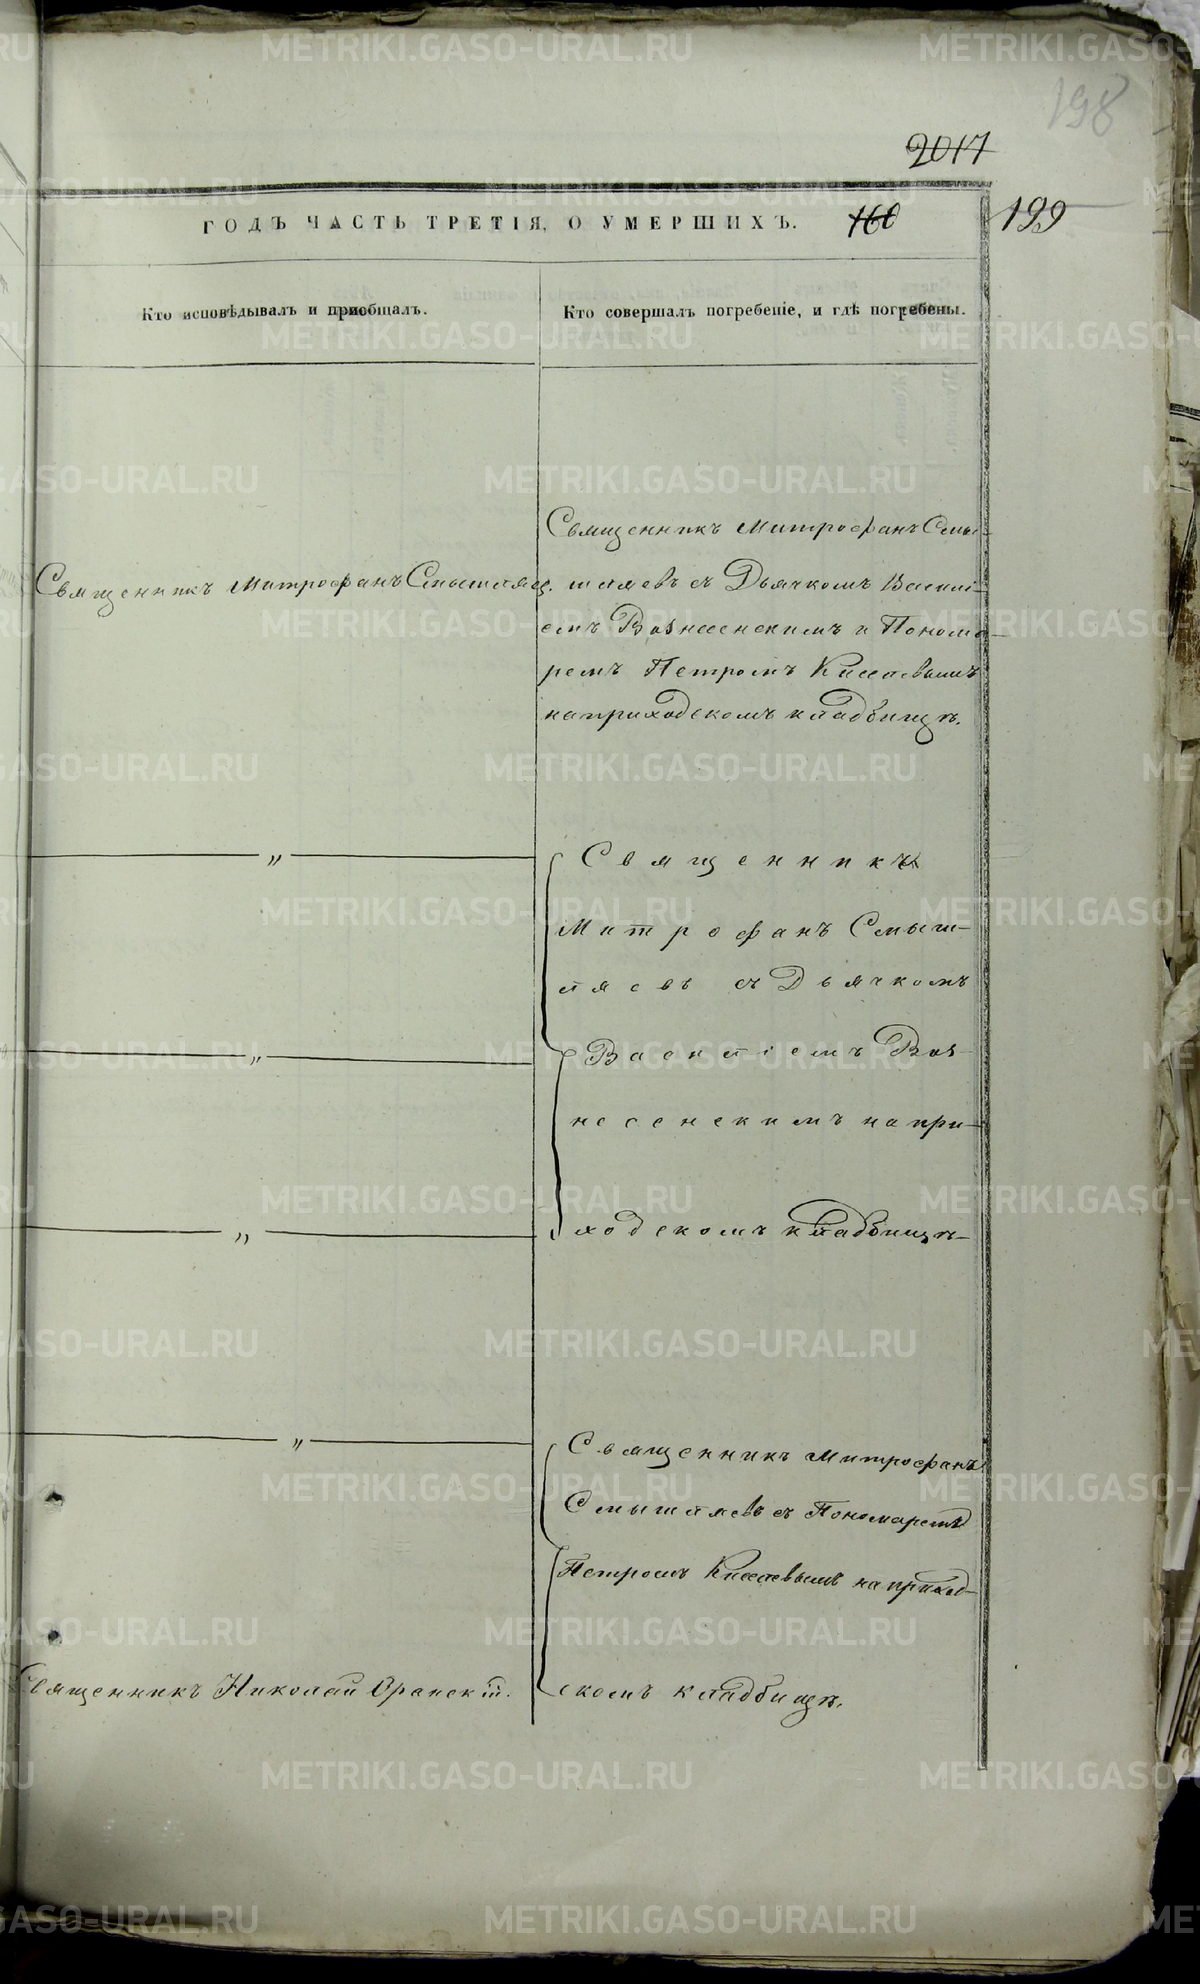 198
2017
ГОДЪ ЧАСТЬ ТРЕТІЯ, О УМЕРШИХЪ.
160
199
Кто исповѣдывалъ и приобщалъ.
Кто совершалъ погребеніе, и гдѣ погребены.
Священникъ Митрофанъ Смышляев.
Священникъ Митрофанъ Смы-
шляевъ съ Дьячкомъ Василі-
емъ Вознесенскимъ и Понома-
ремъ Петромъ
на приходскомъ кладбищѣ.
"
Священникъ
Митрофанъ Смыш-
ляевъ съ Дьячкомъ
"
Василіемъ Воз-
несенскимъ на при-
"
ходскомъ кладбищѣ
"
Священникъ Митрофанъ
Смышляевъ съ Пономаремъ
Петромъ на приход-
Священникъ Николай
скомъ кладбищѣ.
METRIKI.GASO-URAL.RU